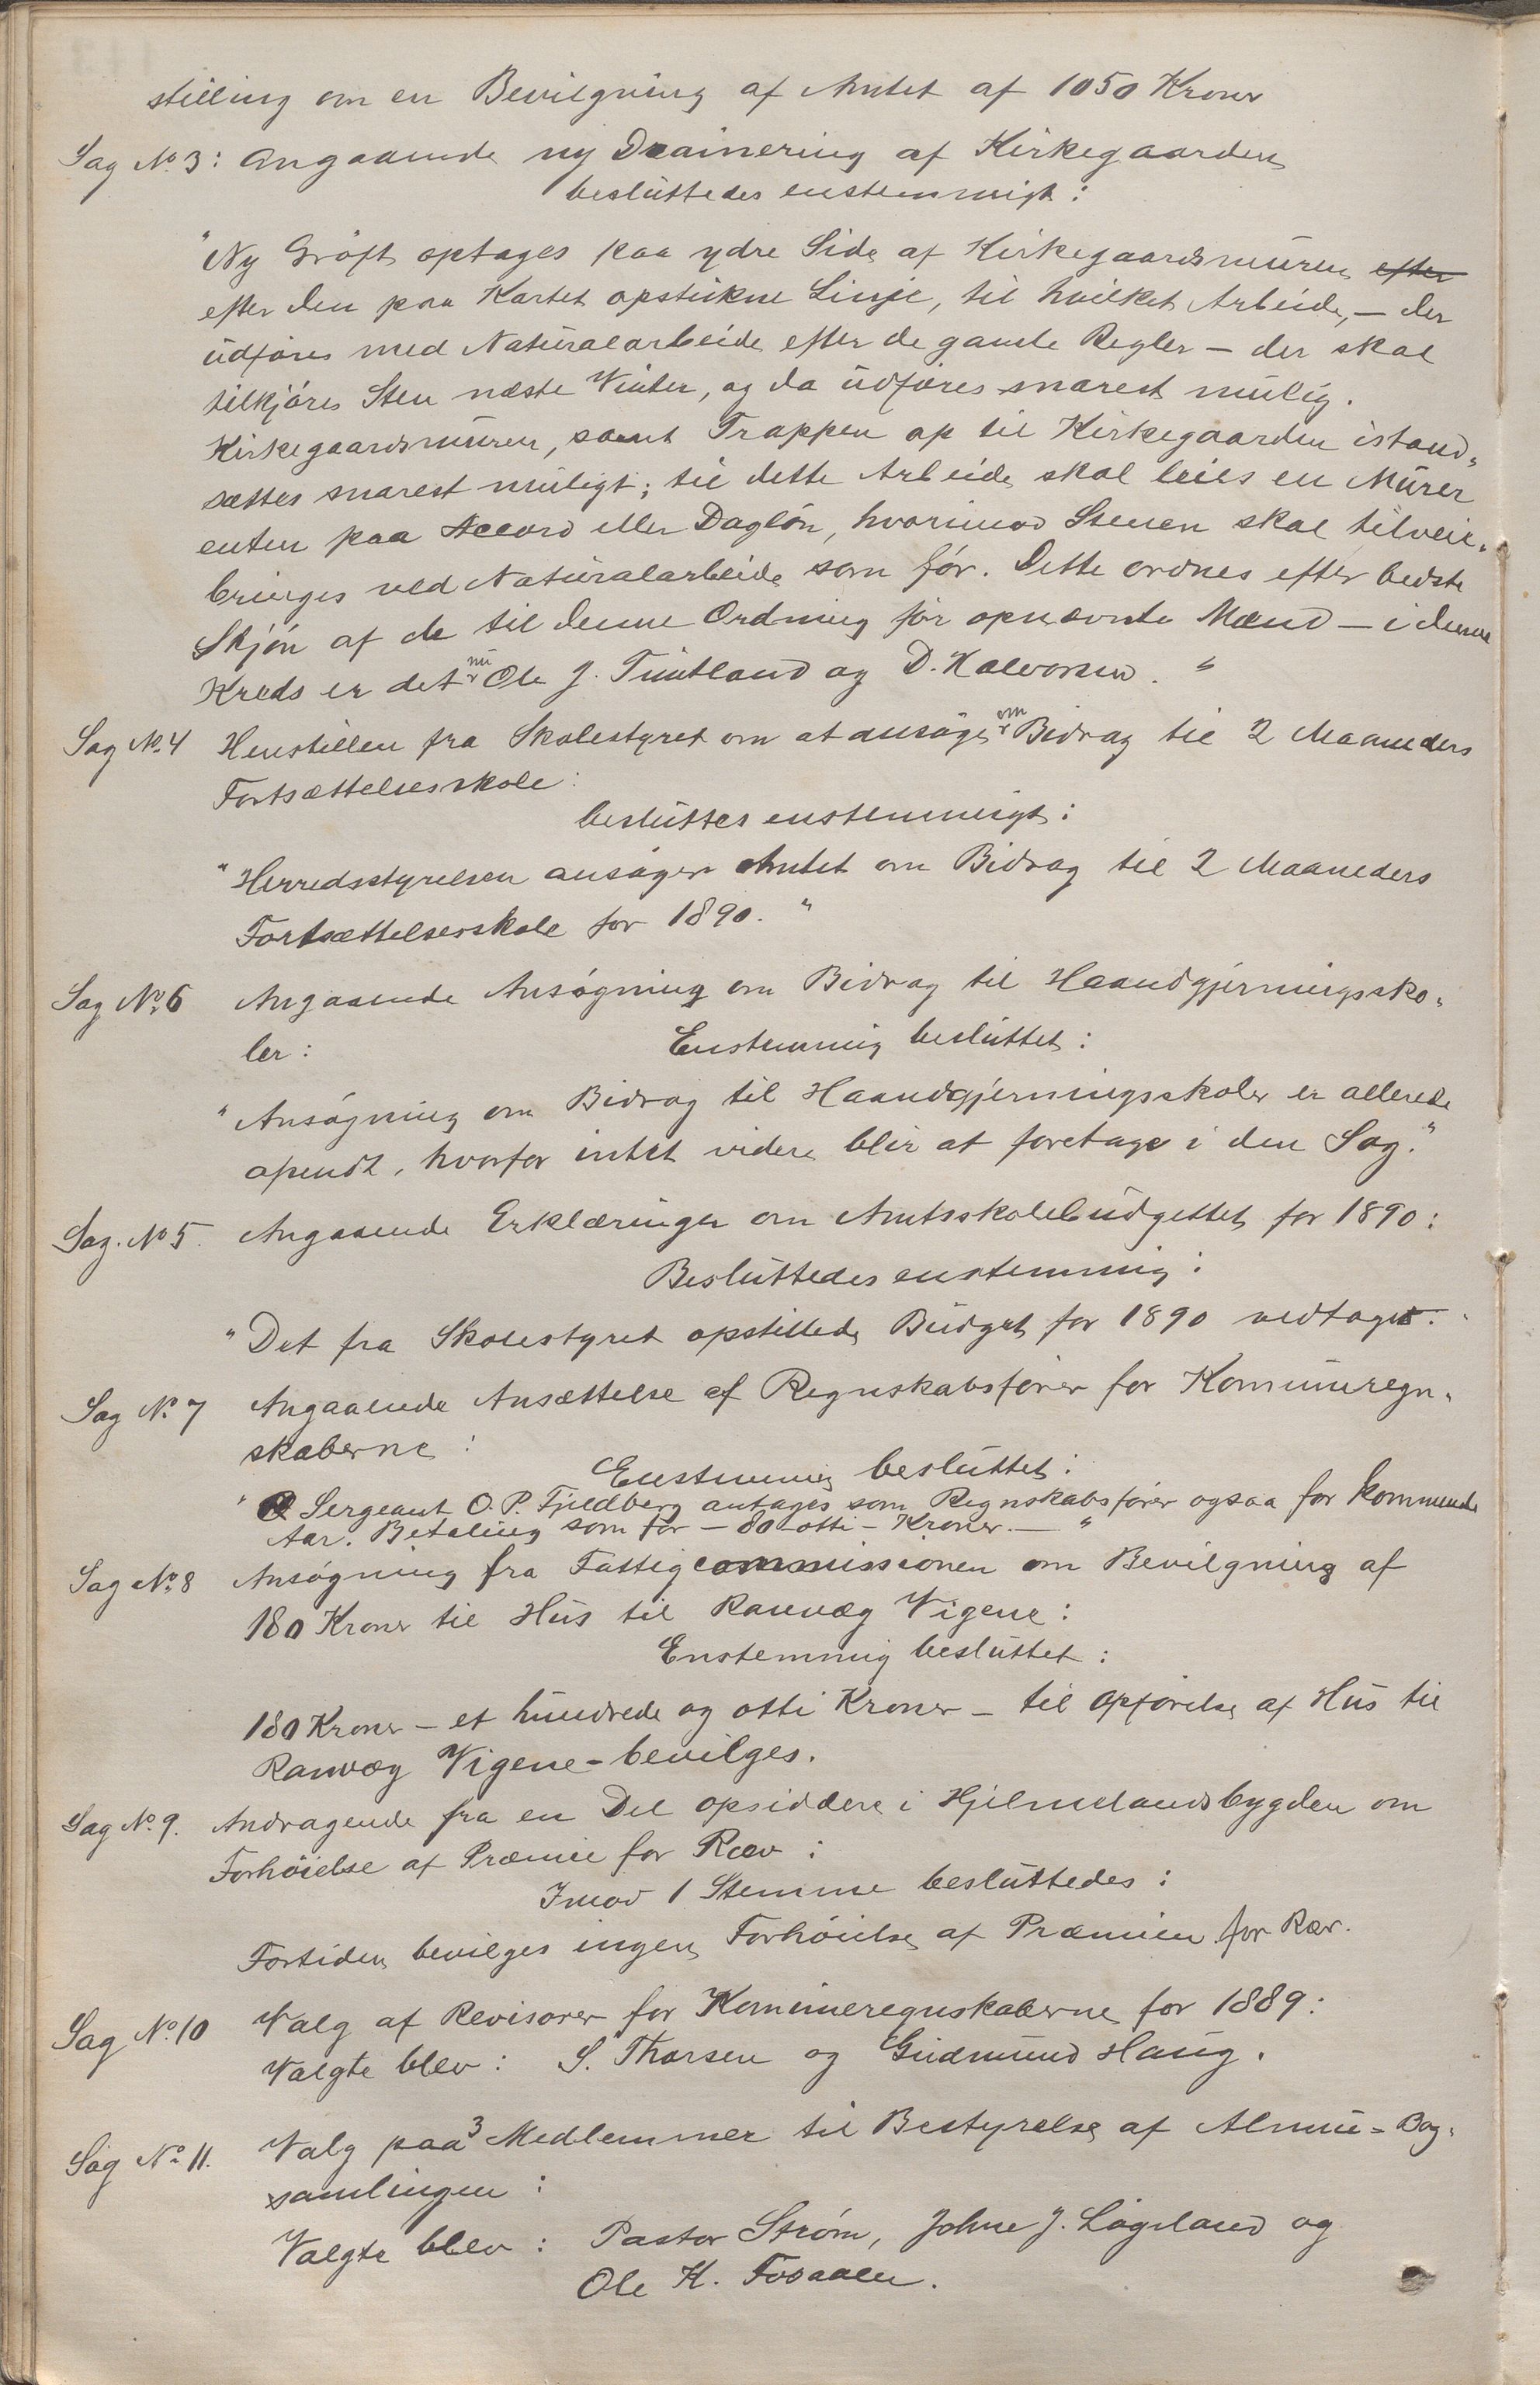 stilling om en Bevilgning af Amtet af 1050 Kroner
Sag No. 3: Angaaende ny Drainering af Kirkegaarden
besluttedes enstemmigt:
"Ny Gröft optages paa ydre Side af Kirkegaardsmuren efter
efter den paa Kartet opstukne Linje, til hvilket Arbeide, — der
udføres med Naturalarbeide efter de gamle Regler — der skal
tilkjöres Sten næste Vinter, og da udföres snarest mulig.
Kirkegaardsmuren, samt Trappen op til Kirkegaarden istand„
sættes snarest muligt; til dette Arbeide skal leies en Murer
enten paa Accord eller Daglön, hvorimod Stenen skal tilveie„
bringes ved Naturalarbeide som för. Dette ordnes efter bedste
Skjön af de til denne Ordning för opnævnte Mænd — i denne
Kreds er det nu Ole J. Tuntland og D. Halvorsen. "
Sag No. 4 Henstillen fra Skolestyret om at ansöge om Bidrag til 2 Maaneders
Fortsættelsesskole:
besluttes enstemmigt:
"Herredsstyrelsen ansøger Amtet om Bidrag til 2 Maaneders
Fortsættelsesskole for 1890. "
Sag No. 6 Angaaende Ansögning om Bidrag til Haandgjerningssko„
ler: Enstemmig besluttet:
"Ansögning om Bidrag til Haandgjerningsskoler er allerede
opsendt, hvorfor intet videre blir at foretage i den Sag."
Sag. No 5. Angaaende Erklæringer om Amtsskolebudgettet for 1890:
Besluttedes enstemmig:
"Det fra Skolestyret opstillede Budget for 1890 vedtaget.
Sag No. 7 Angaaende Ansættelse af Regnskabsfører for Kommuneregn„
skaberne:
Enstemmig besluttet:
" Sergeant O. P. Fjeldberg antages som Regnskabsfører ogsaa for kommende
Aar. Betaling som før — 80 — otti — Kroner. — "
Sag No. 8 Ansøgning fra Fattigcommissionen om Bevilgning af
180 Kroner til Hus til Ranvæg Vigene:
Enstemmig besluttet:
180 Kroner — et hundrede og otti Kroner — til Opførelse af Hus til
Ranvæg Vigene - bevilges.
Sag No. 9. Andragende fra en Del opsiddere i Hjelmelandsbygden om
Forhöielse af Præmie for Ræv:
Imod 1 Stemme besluttedes:
Fortiden bevilges ingen Forhöielse af Præmien for Ræv.
Sag No. 10 Valg af Revisorer for Kommuneregnskaberne for 1889:
Valgte blev: S. Thorsen og Gudmund Haug.
Sag No. 11. Valg paa 3 Medlemmer til Bestyrelse af Almue-Bog„
samlingen:
Valgte blev: Pastor Ström, Johne J. Lögeland og
Ole K. Fosaaen.